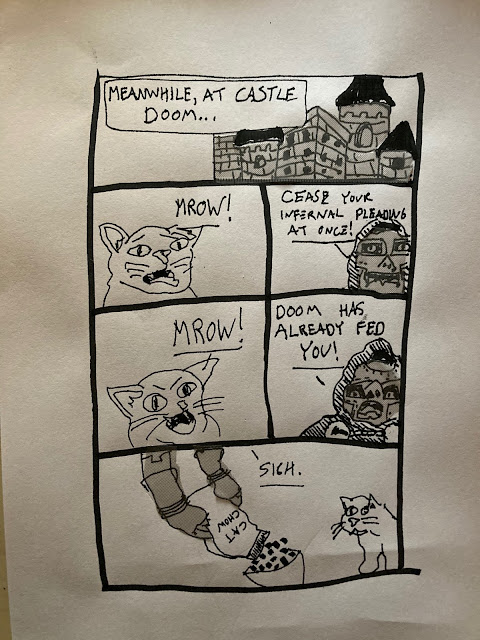 MEANWHILE, AT CASTLE
DOOM...
MROW!
CEASE YOUR
INFERNAL PLEADING
AT ONCE!
MROW!
DOOM HAS
ALREADY FED
YOU!
SIGH.
CAT
CHOW